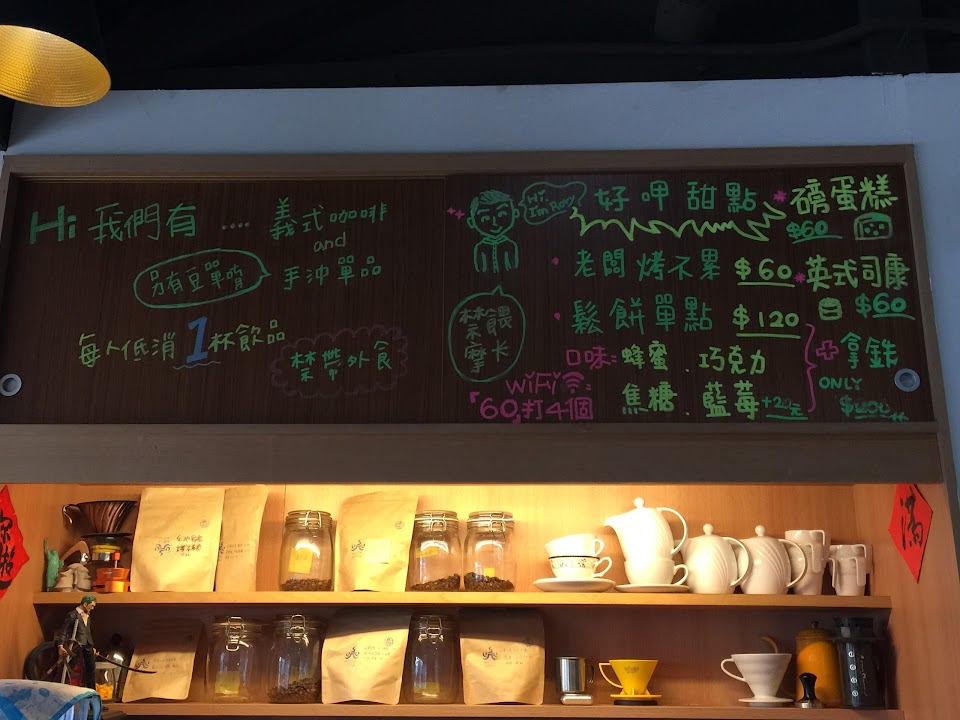 Hi 我們有 .... 義式咖啡
and
另有豆單唷
手沖單品
每人低消1杯飲品
禁帶外食
Hi, I'm Roy
好呷甜點
磅蛋糕
$60
老闆烤不累 $60
英式司康
$60
禁餵
摩卡
鬆餅單點 $120
口味: 蜂蜜、巧克力
焦糖、藍莓+20元
+拿鐵
ONLY
WiFi:
「60」打4個
滿